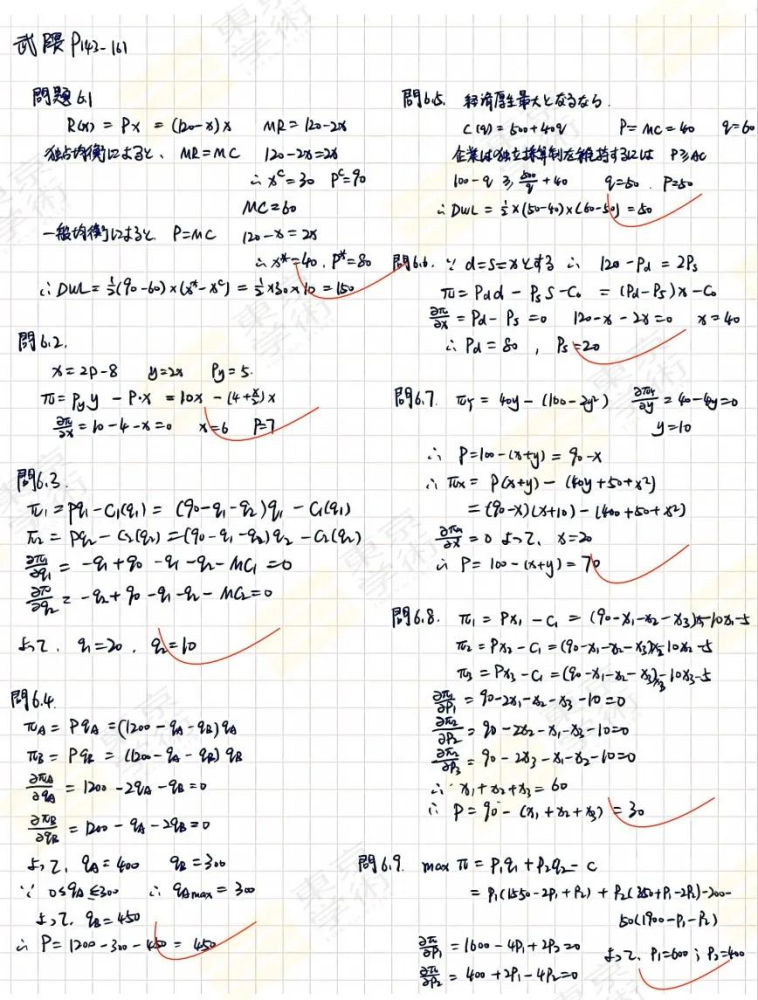 武隈 P142-161
問題6.1
R(x) = Px = (120-x)x MR = 120-2x
独占均衡によると、MR = MC 120-2x=2x
∴ x^c = 30 P^c = 90
MC = 60
一般均衡によると P=MC 120-x = 2x
∴ x* = 40, P* = 80
∴ DWL = 1/2(90-60)×(x*-x^c) = 1/2×30×10 = 150
問6.2.
x = 2P-8 y=2x Py = 5.
π = Pyy - P·x = 10x - (4+x/2)x
∂π/∂x = 10-4-x=0 x=6 P=7
問6.3.
π1 = Pq1-C1(q1) = (90-q1-q2)q1 - C1(q1)
π2 = Pq2-C2(q2) = (90-q1-q2)q2 - C2(q2)
∂π1/∂q1 = -q1+90-q1-q2-MC1 = 0
∂π/∂q2 = -q2+90-q1-q2-MC2=0
よって、q1=20, q2=10
問6.4.
πA = PqA = (1200-qA-qB)qA
πB = PqB = (1200-qA-qB)qB
∂πA/∂qA = 1200-2qA-qB=0
∂πB/∂qB = 1200-qA-2qB=0
よって、qA=400 qB=300
∵ 0≤qA≤300 ∴ qAmax = 300
よって、qB=450
∴ P = 1200-300-450 = 450
問6.5. 経済厚生最大となるなら.
C(q) = 500+40q P=MC=40 q=60
企業は独立採算制を維持するには P≥AC
100-q ≥ 500/q+40 q=50. P=50
∴ DWL = 1/2×(50-40)×(60-50) = 50
問6.6. ∵ d=s=xとする ∴ 120-Pd = 2Ps
π = Pdd - PsS-C0 = (Pd-Ps)x-C0
∂π/∂x = Pd-Ps=0 120-x-2x=0 x=40
∴ Pd = 80, Ps=20
問6.7. πY = 40y-(100-2y²) ∂πY/∂y = 40-4y=0
y=10
∴ P=100-(x+y) = 90-x
∴ πx = P(x+y) - (40y+50+x²)
= (90-x)(x+10) - (400+50+x²)
∂πx/∂x = 0 よって、x=20
∴ P = 100-(x+y) = 70
問6.8. π1 = Px1-C1 = (90-x1-x2-x3)x1-10x1-5
π2 = Px2-C1 = (90-x1-x2-x3)x2-10x2-5
π3 = Px3-C1 = (90-x1-x2-x3)x3-10x3-5
∂π1/∂P1 = 90-2x1-x2-x3-10=0
∂π2/∂P2 = 90-2x2-x1-x3-10=0
∂π3/∂P3 = 90-2x3-x1-x2-10=0
∴ x1+x2+x3 = 60
∴ P = 90-(x1+x2+x3) = 30
問6.9. max π = P1q1+P2q2-C
= P1(1550-2P1+P2) + P2(350+P1-2P2)-200-
50(1900-P1-P2)
∂π/∂P1 = 1600-4P1+2P2=0
よって、P1=600; P2=400
∂π/∂P2 = 400+2P1-4P2=0
東京学術